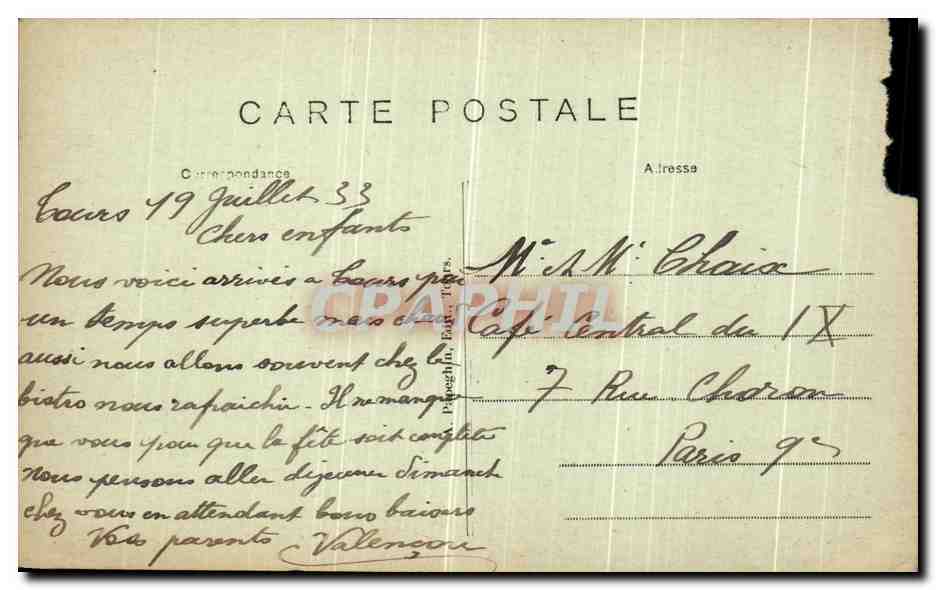 CARTE POSTALE
Correspondance
Adresse
Tours 19 Juillet 33
chers enfants
Nous voici arrivés a Tours par
un temps superbe mais chaud
aussi nous allons souvent chez le
bistro nous rafraichir. Il ne manque
que vous pour que la fête soit complète
nous pensons aller dejeuner dimanche
chez vous en attendant bons baisers
Vos parents Valençon
Mr et Me Chaix
Café Central du IX
7 Rue Choron
Paris 9e
Papeghin, Edit., Tours.
CPAPHIL